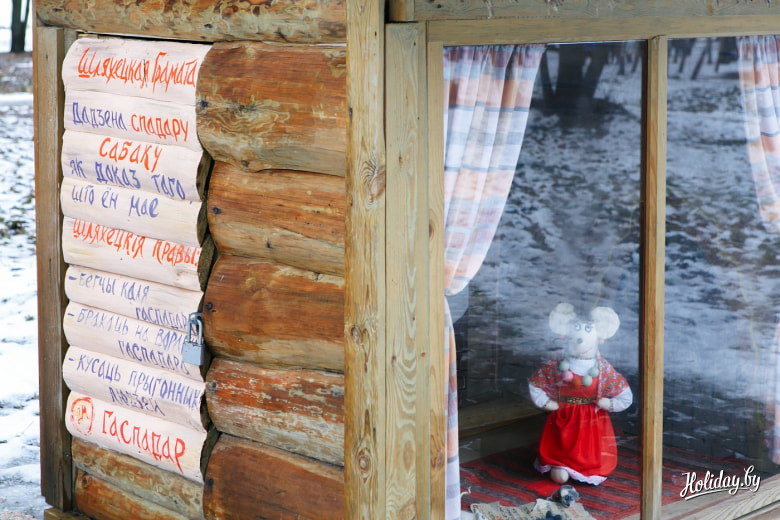 Шляхецкая Грамата
Дадзена спадару
Сабаку
як доказ таго,
што ён мае
шляхецкія правы:
- бегчы каля
гаспадара
- брахаць на
гаспадара
- кусаць прыгонных
людзей
Гаспадар
Holiday.by